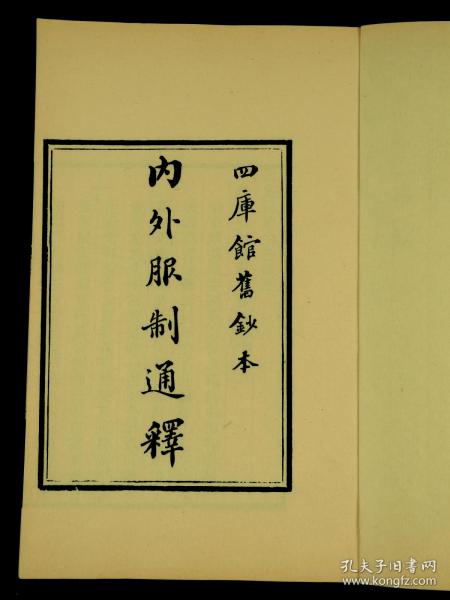 四庫館舊鈔本
内外服制通釋
孔夫子旧书网
www.kongfz.com